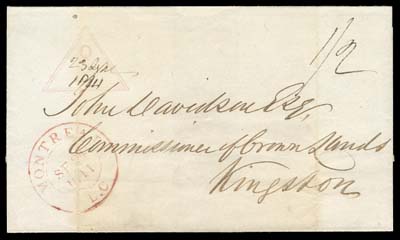 1/2
23 Sept
1841
John Davidson Esq,
Commissioner of Crown Lands
Kingston
MONTREAL
L.C.